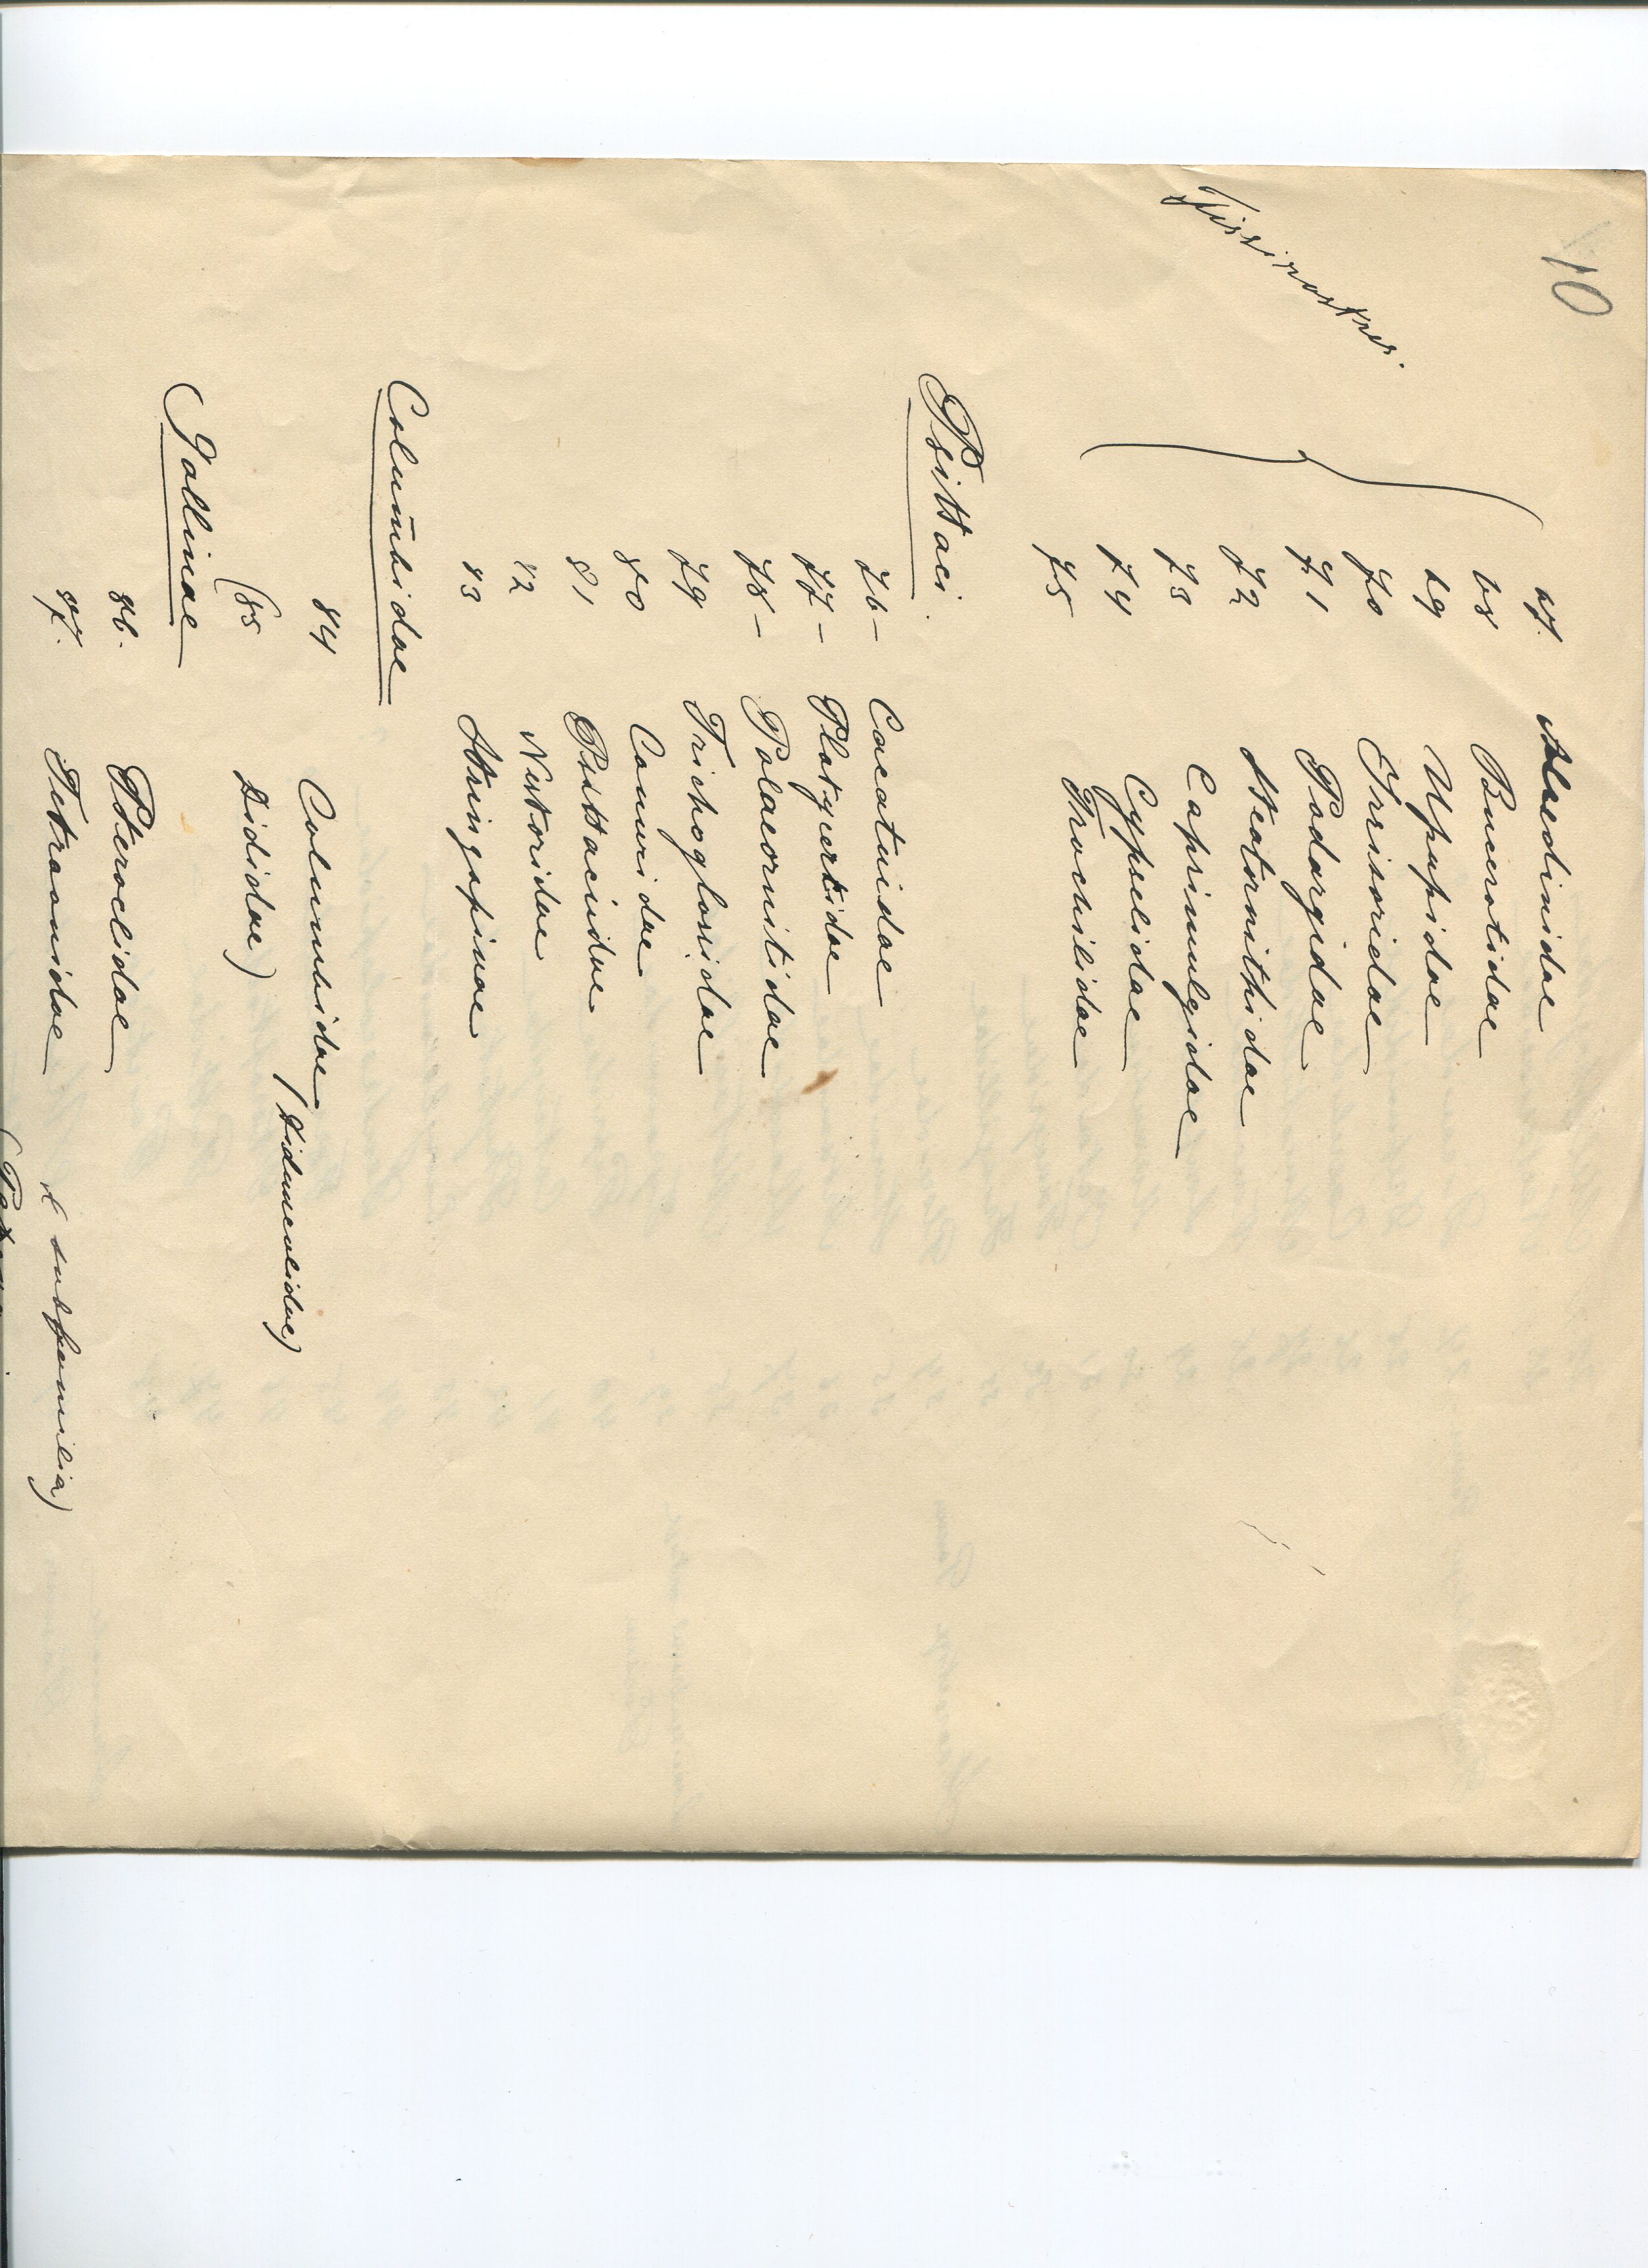 10
67. Alcedinidae
68 Bucerotidae
69 Upupidae
70 Irrisoridae
Fissirostres.
71 Podargidae
72 Steatornithidae
73 Caprimulgidae
74 Cypselidae
75 Trochilidae
Psittaci.
76 - Cacatuidae
77 - Platycercidae
78 - Palaeornitidae
79 Trichoglossidae
80 Conuridae
81 Psittacidae
82 Nestoridae
83 Stringopinae
Columbidae
84 Columbidae (Didunculidae)
(85 Dididae)
Gallinae
86. Pteroclidae
87. Tetraonidae subfamilia)